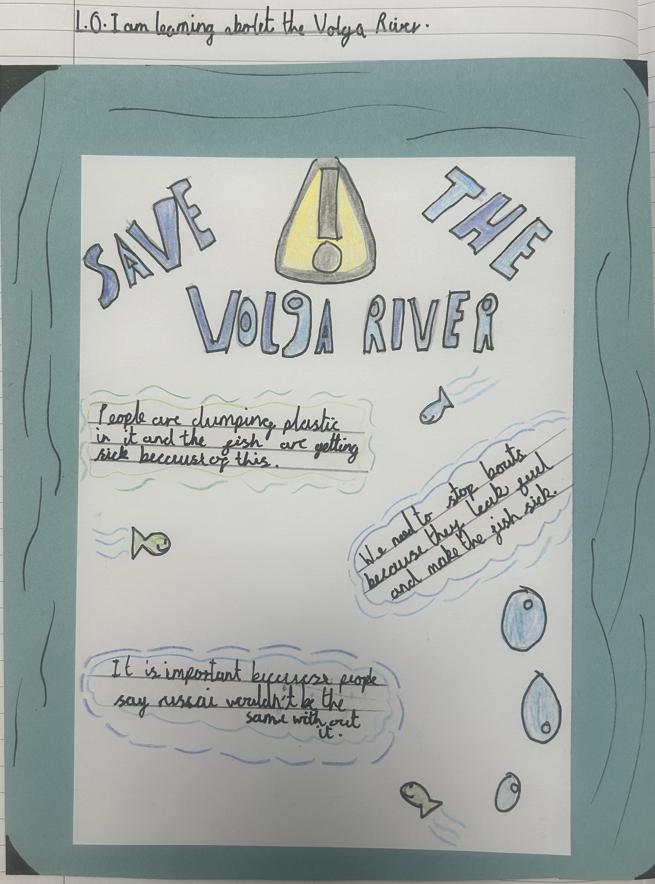 L.O. I am learning abolet the Volga River.
SAVE ! THE
VOLgA RIVER
People are dumping plastic
in it and the fish are getting
sick because of this.
We need to stop bouts
because they leak fuel
and make the fish sick.
It is important becuse people
say russai wouldn't be the
same with out
it.